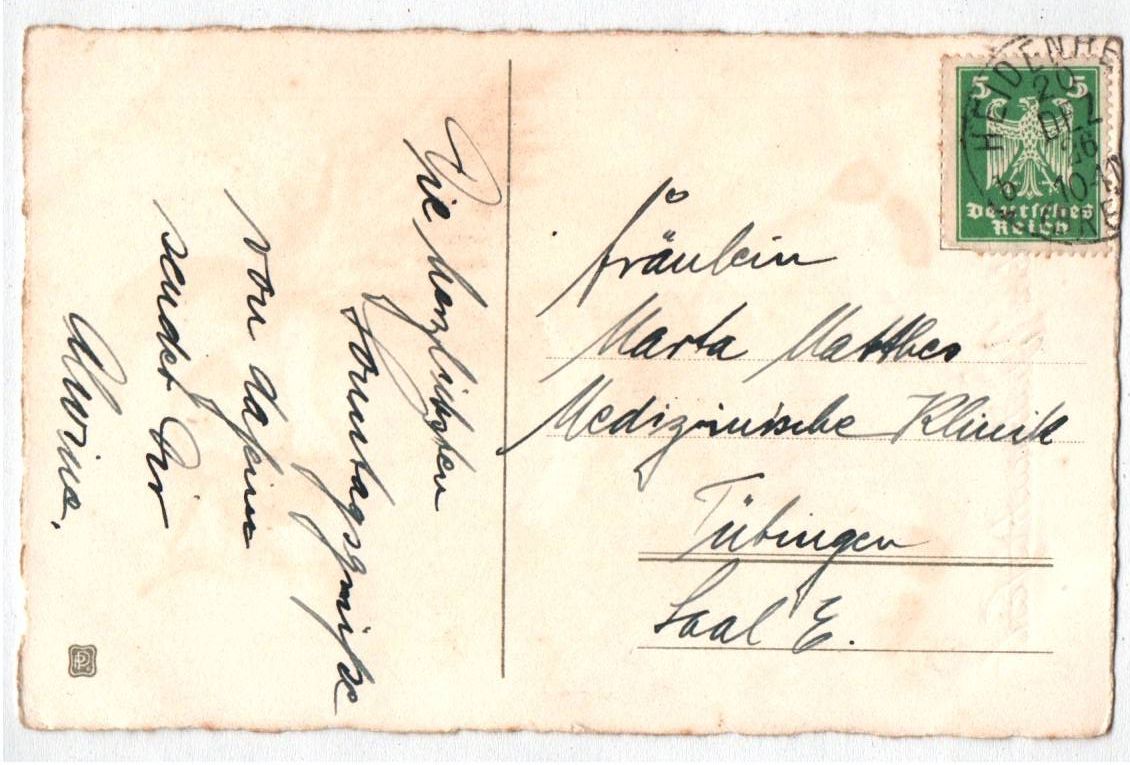 Die herzlichsten
Sonntagsgrüße
von daheim
sendet Dir
Alwine.
Fräulein
Marta Matthes
Medizinische Klinik
Tübingen
Saal E.
5 5
Deutsches
Reich
HEIDENHE
20
DEZ
26
10-11
PP